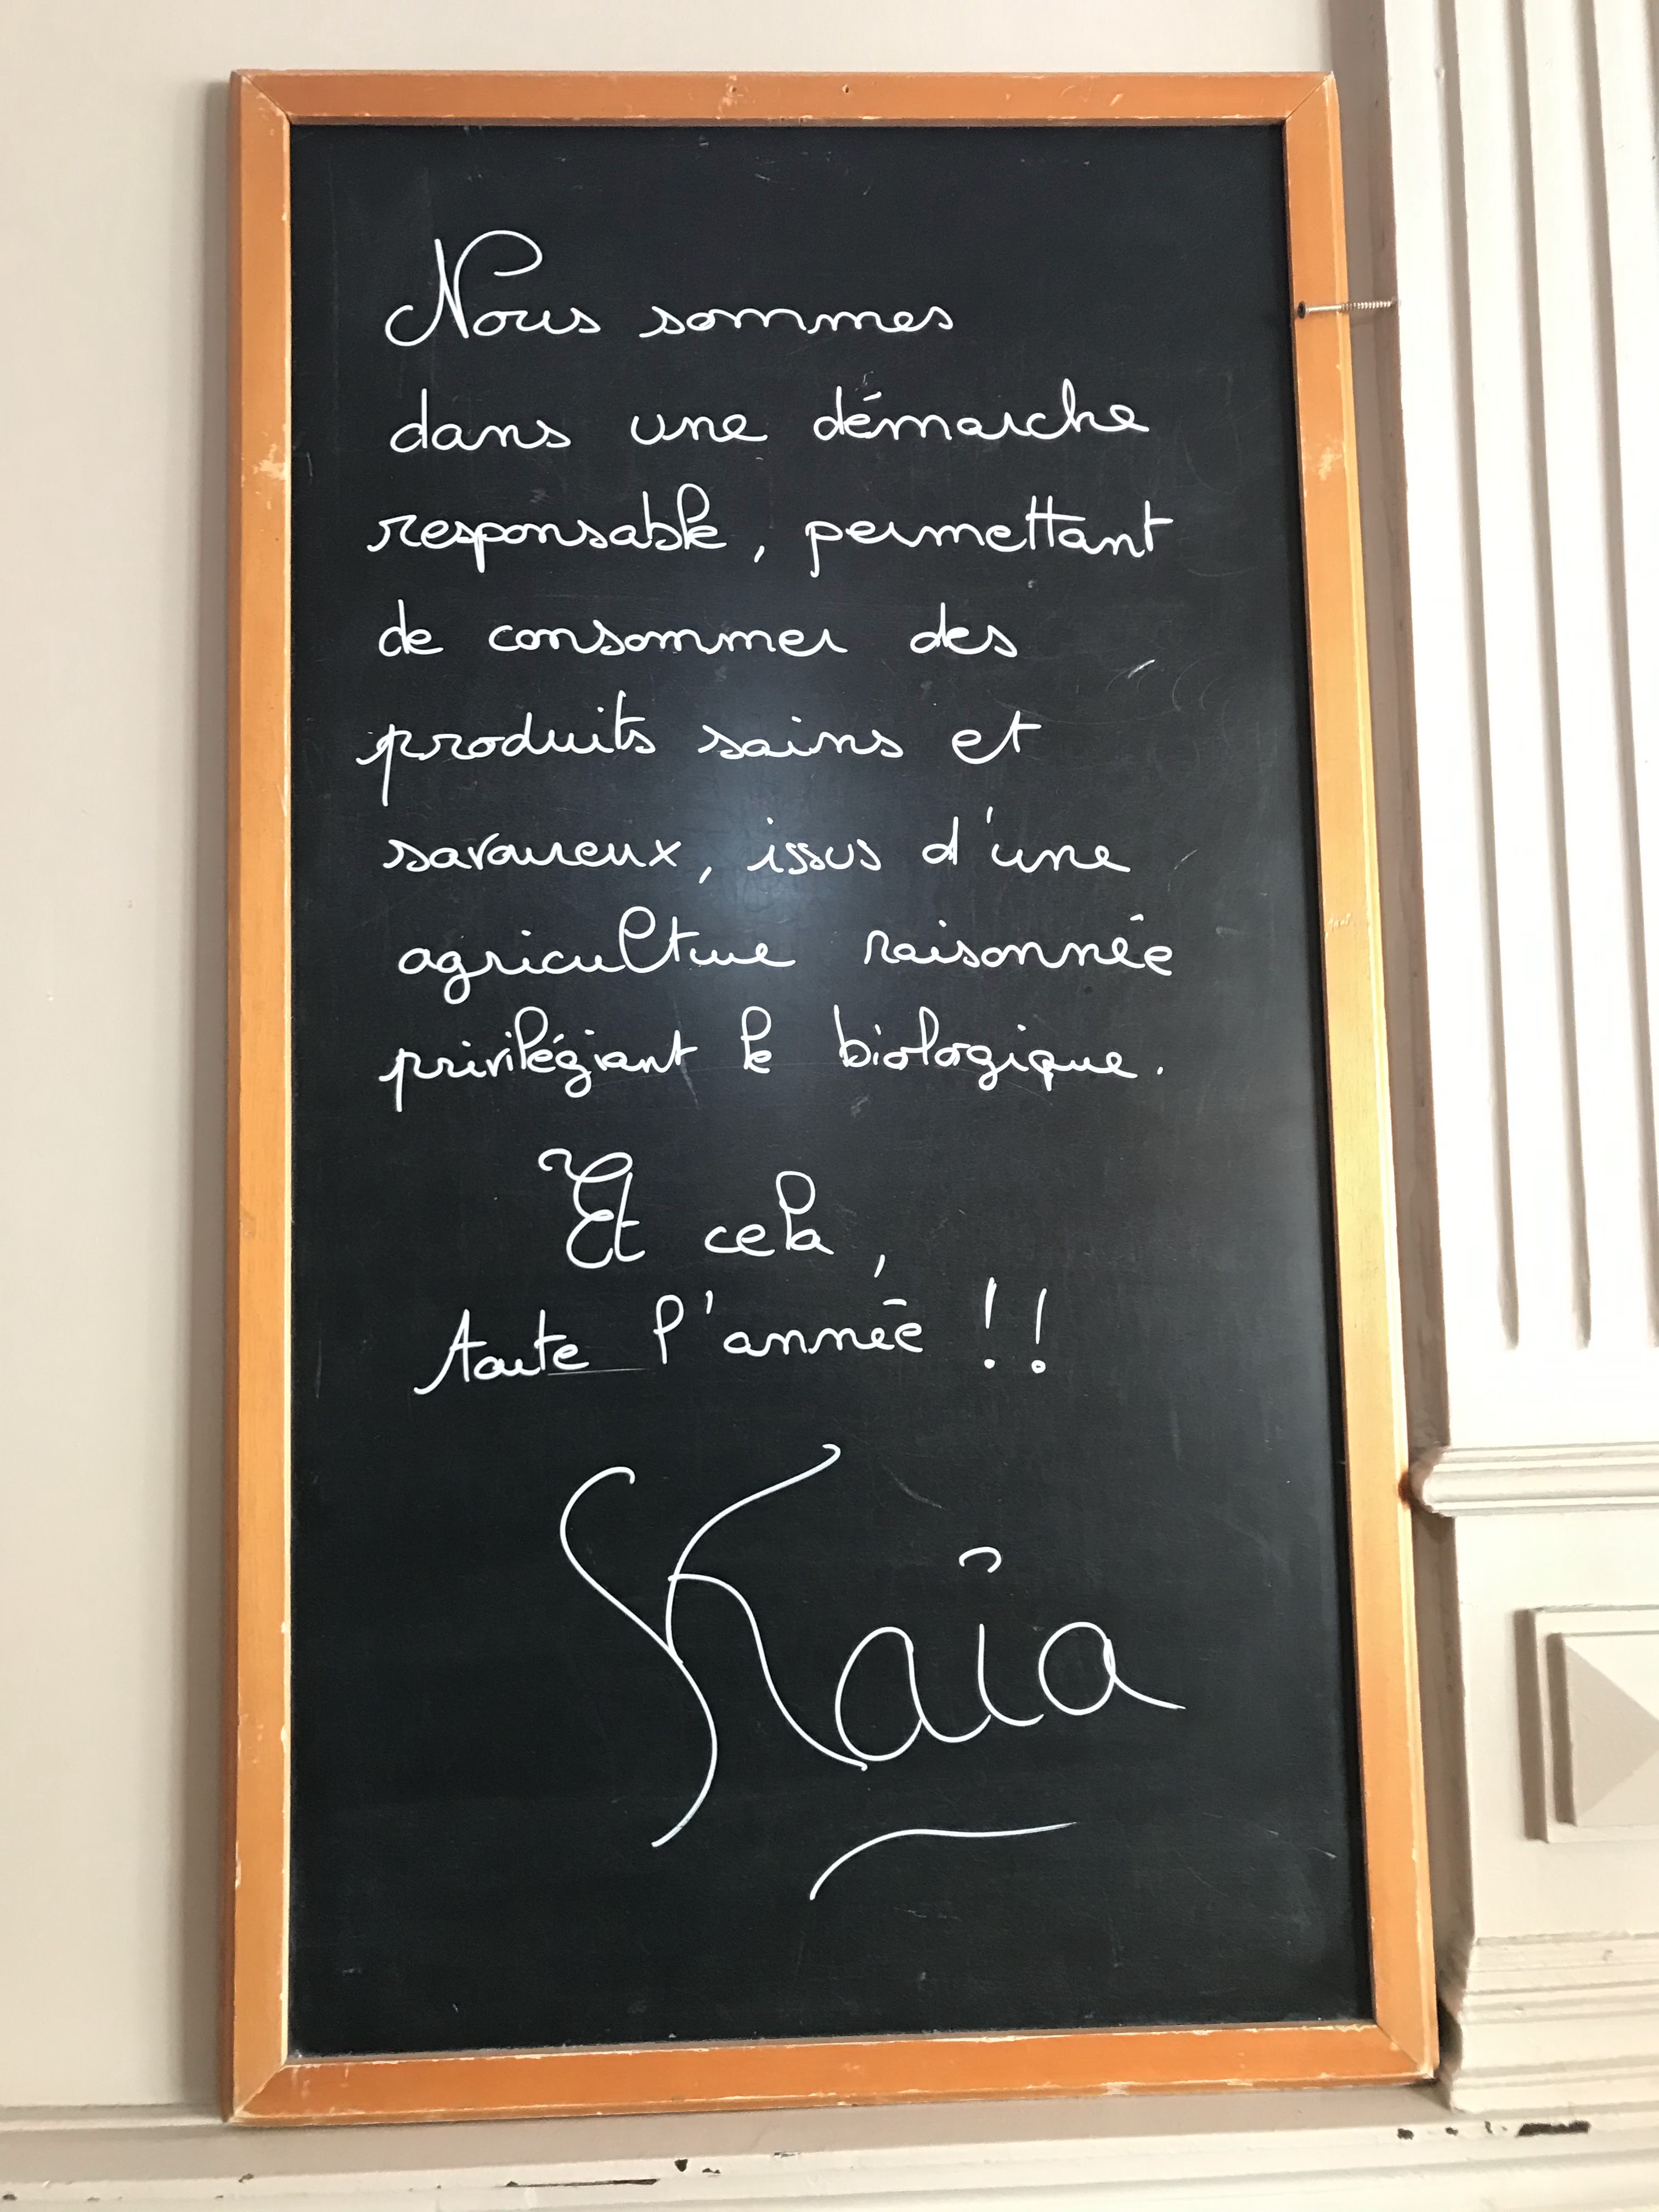 Nous sommes
dans une démarche
responsable, permettant
de consommer des
produits sains et
savoureux, issus d'une
agriculture raisonnée
privilégiant le biologique.
Et cela,
toute l'année !!
Kaïa